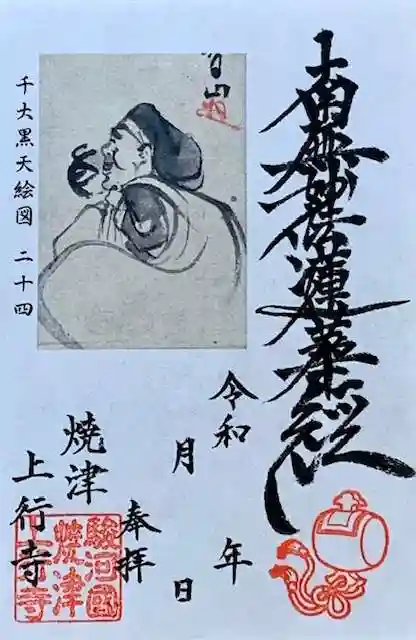 南無妙法蓮華経
山
千大黒天絵図 二十四
令和 年
月 日
奉拝
焼津
上行寺
駿河國
焼津
上行寺